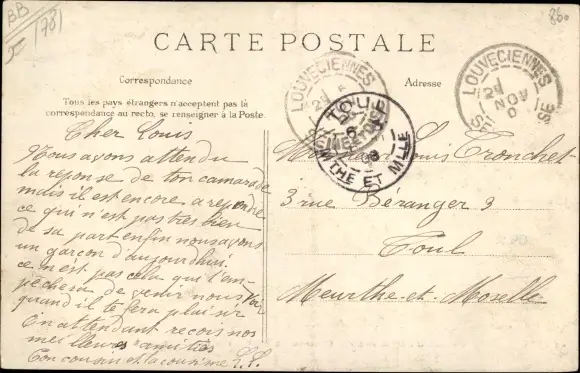 BB
(78)
860
CARTE POSTALE
Correspondance
Adresse
Tous les pays étrangers n'acceptent pas la
correspondance au recto, se renseigner à la Poste
Cher Louis
Nous avons attendu
la réponse de ton camarade
mais il est encore a repondre
ce qui n'est pas très bien
de sa part enfin nous avons
un garçon d'aujourdhui
ce n'est pas cela qui t'em-
pêchera de venir nous voir
quand il te fera plaisir
En attendant reçois nos
meilleures amitiés
Ton cousin et la cousine L.T.
LOUVECIENNES
TOUL
MTHE ET MLLE
LOUVECIENNES
NOV
Monsieur Louis Tronchet
3 rue Béranger 3
Toul
Meurthe-et-Moselle